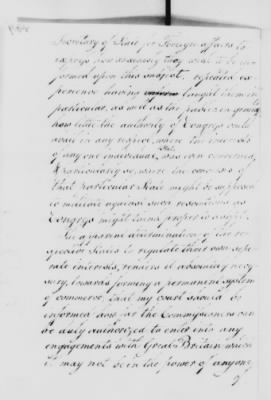 Secretary of State for Foreign affairs to
express how necessary they wish to be in-
formed upon this subject. repeated ex-
perience having taught them in
particular, as well as the public in general,
how little the authority of Congress could
avail in any respect, where the interests
of any one individual State was concerned,
& particularly so, where the concerns of
that particular State might be supposed
to militate against such resolutions as
Congress might think proper to adopt.
The apparent determination of the res-
pective States to regulate their own sepe-
rate interests, renders it absolutely neces-
sary, towards forming a permanent system
of commerce, that my court should be
informed how far the Commissioners can
be duly authorized to enter into any
engagements with Great Britain which
it may not be in the power of any one
of